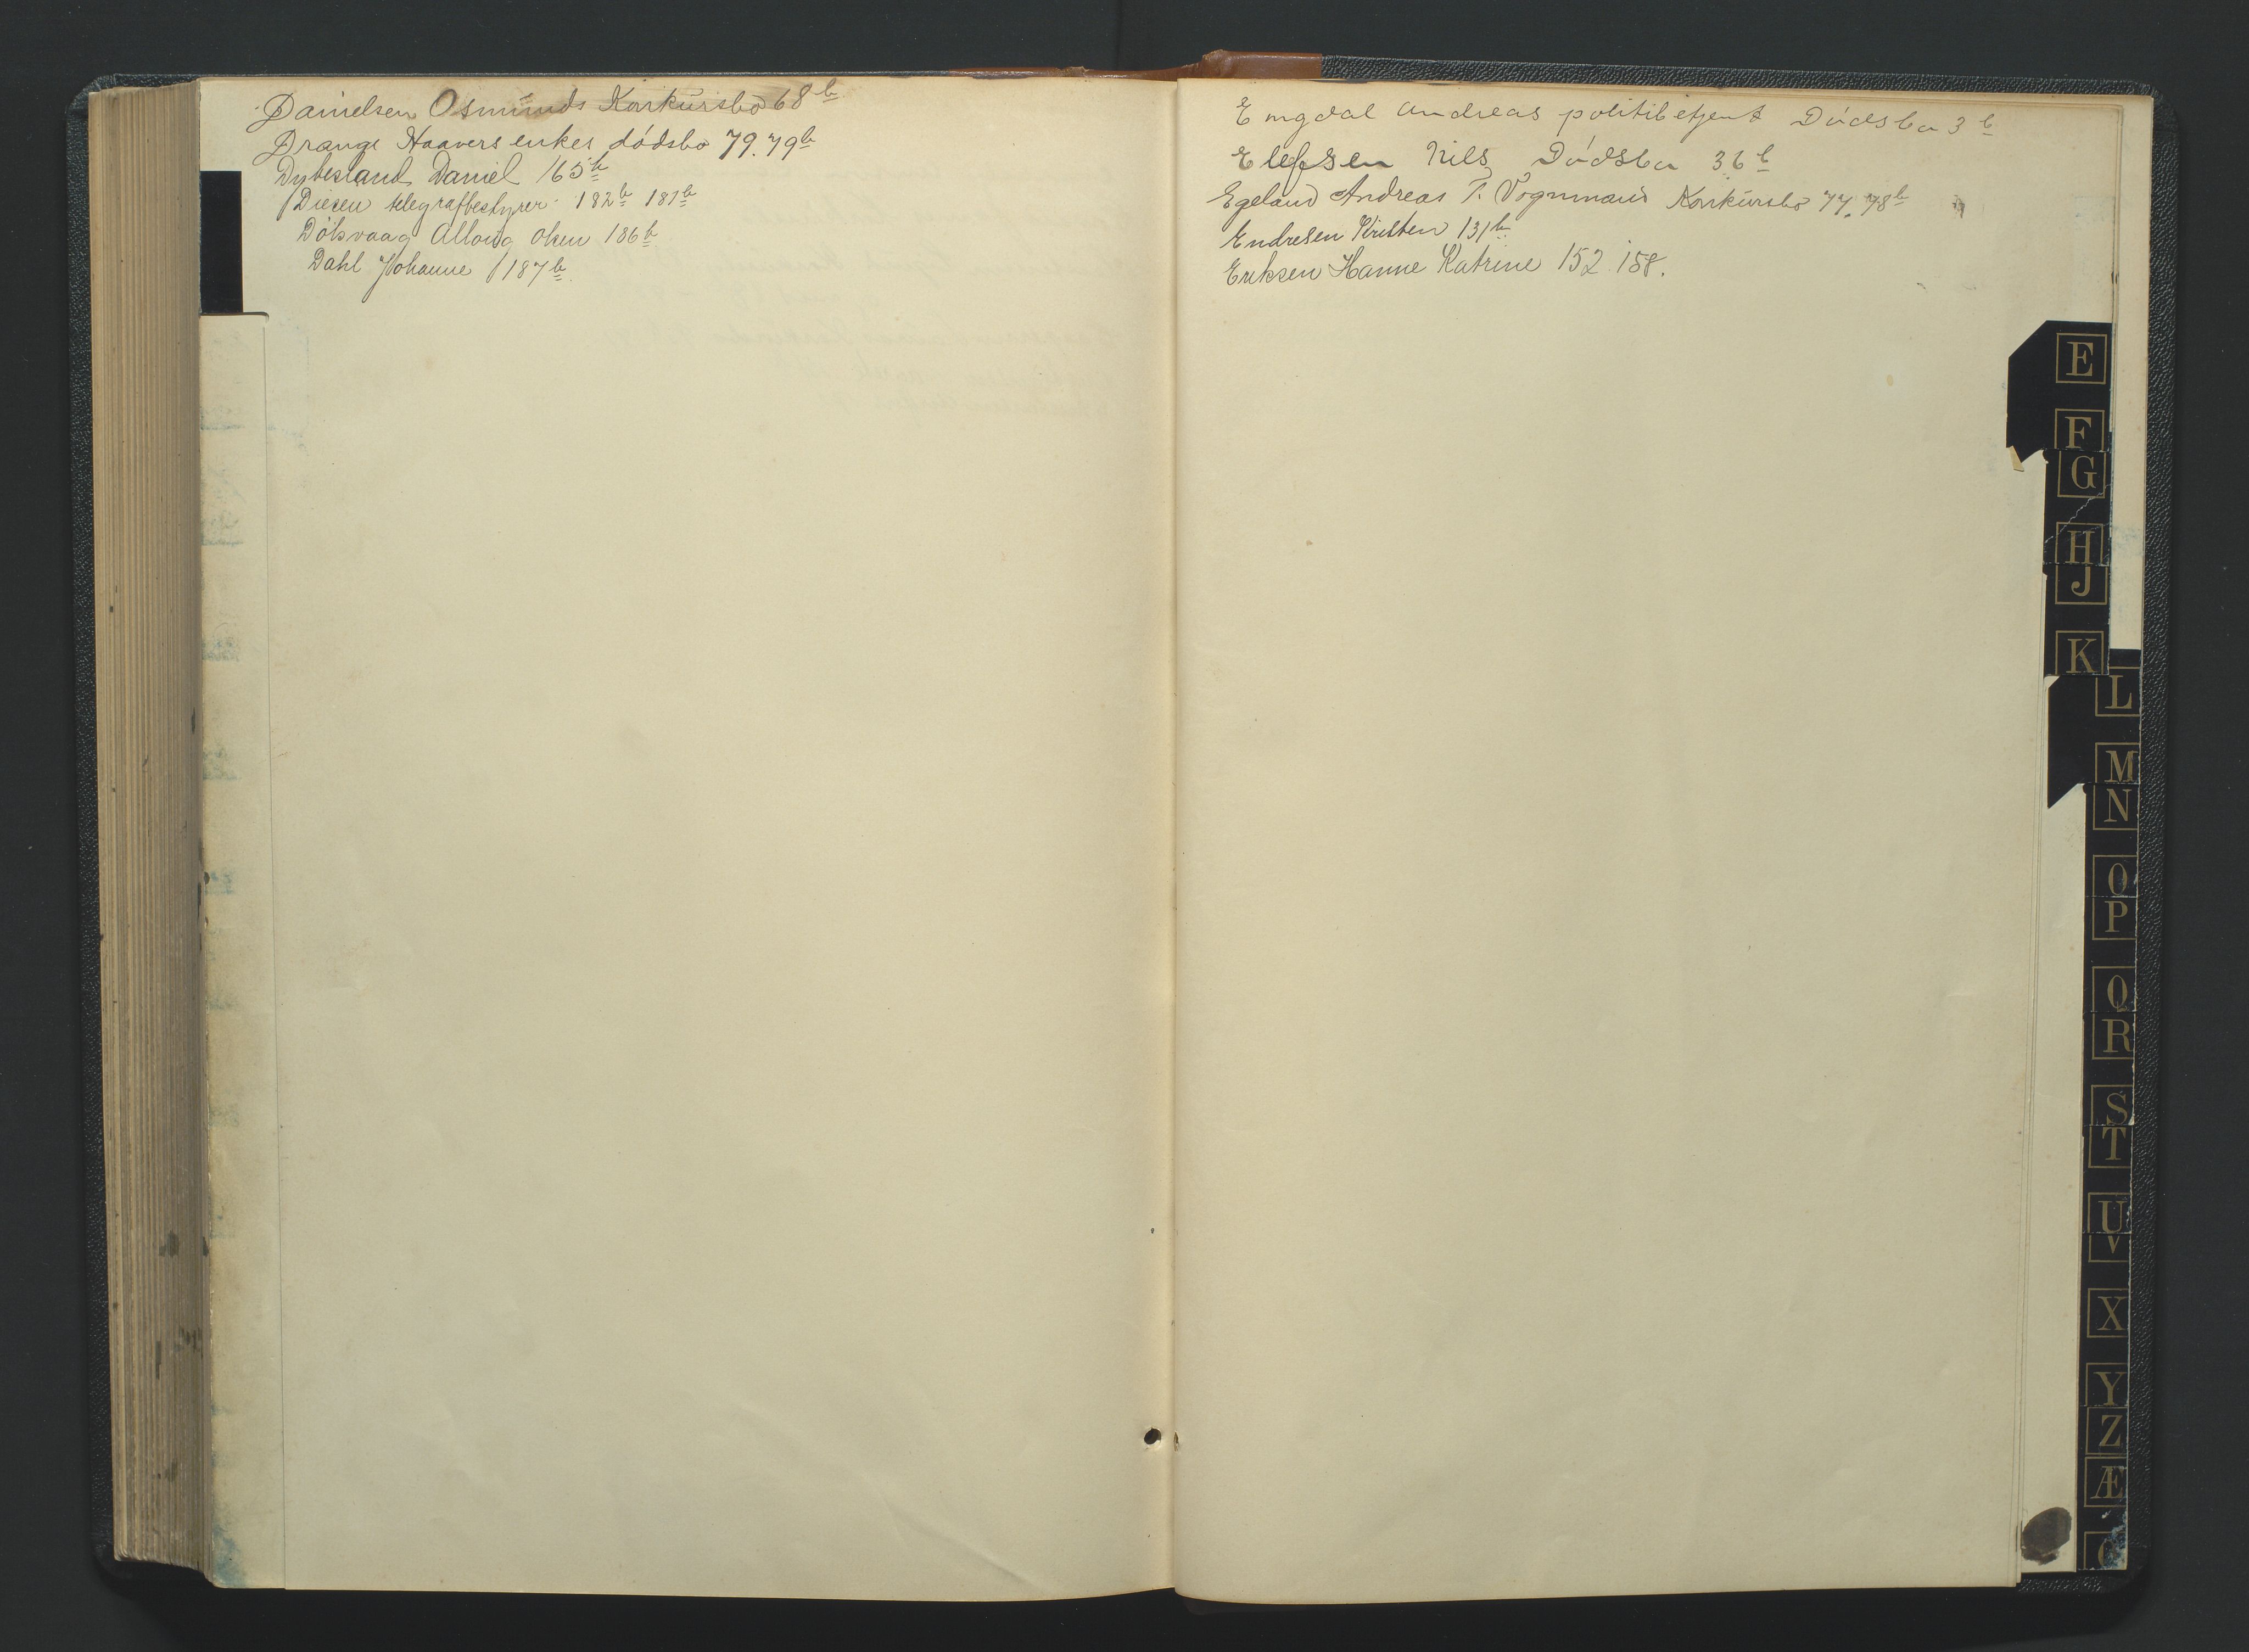 Danielsen Osmunds Konkursbo 68b
Drange Haavers enkes dødsbo 79. 79b
Dybesland Daniel 165b
Diesen telegrafbestyrer 182b 181b
Olsen 186b
Dahl Johanne 187b
Engdal Andreas politibetjent Dødsbo 3b
Elefsen Nils Dødsbo 36b
Egeland Andreas T. Vognmand Konkursbo 77. 78b
Endresen Kirsten 131b
Eriksen Hanne Katrine 152 158.
E
F
G
H
J
K
L
M
N
O
P
Q
R
S
T
U
V
X
Y
Z
Æ